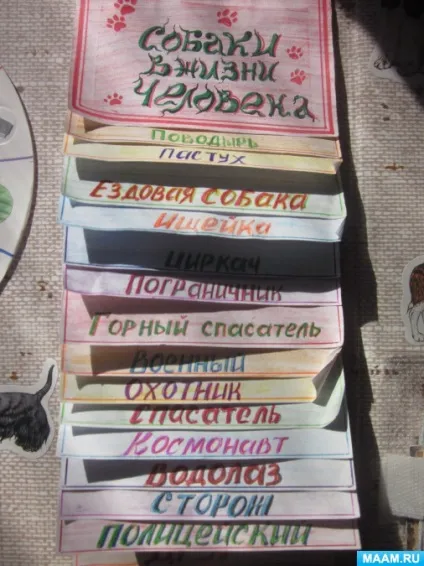 Собаки
в жизни
человека
Поводырь
пастух
Ездовая собака
ищейка
циркач
Пограничник
Горный спасатель
Военный
охотник
спасатель
Космонавт
Водолаз
сторож
полицейский
MAAM.RU